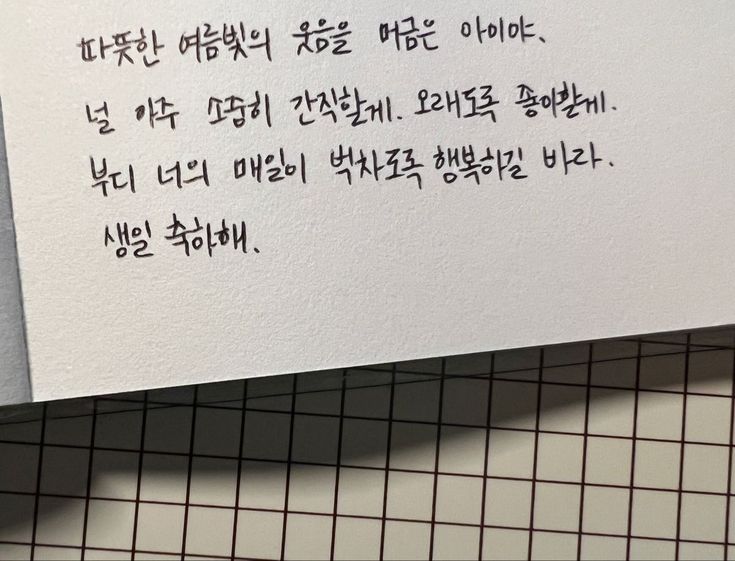 따뜻한 여름빛의 웃음을 머금은 아이야.
널 아주 소중히 간직할게. 오래도록 좋아할게.
부디 너의 매일이 벅차도록 행복하길 바라.
생일 축하해.